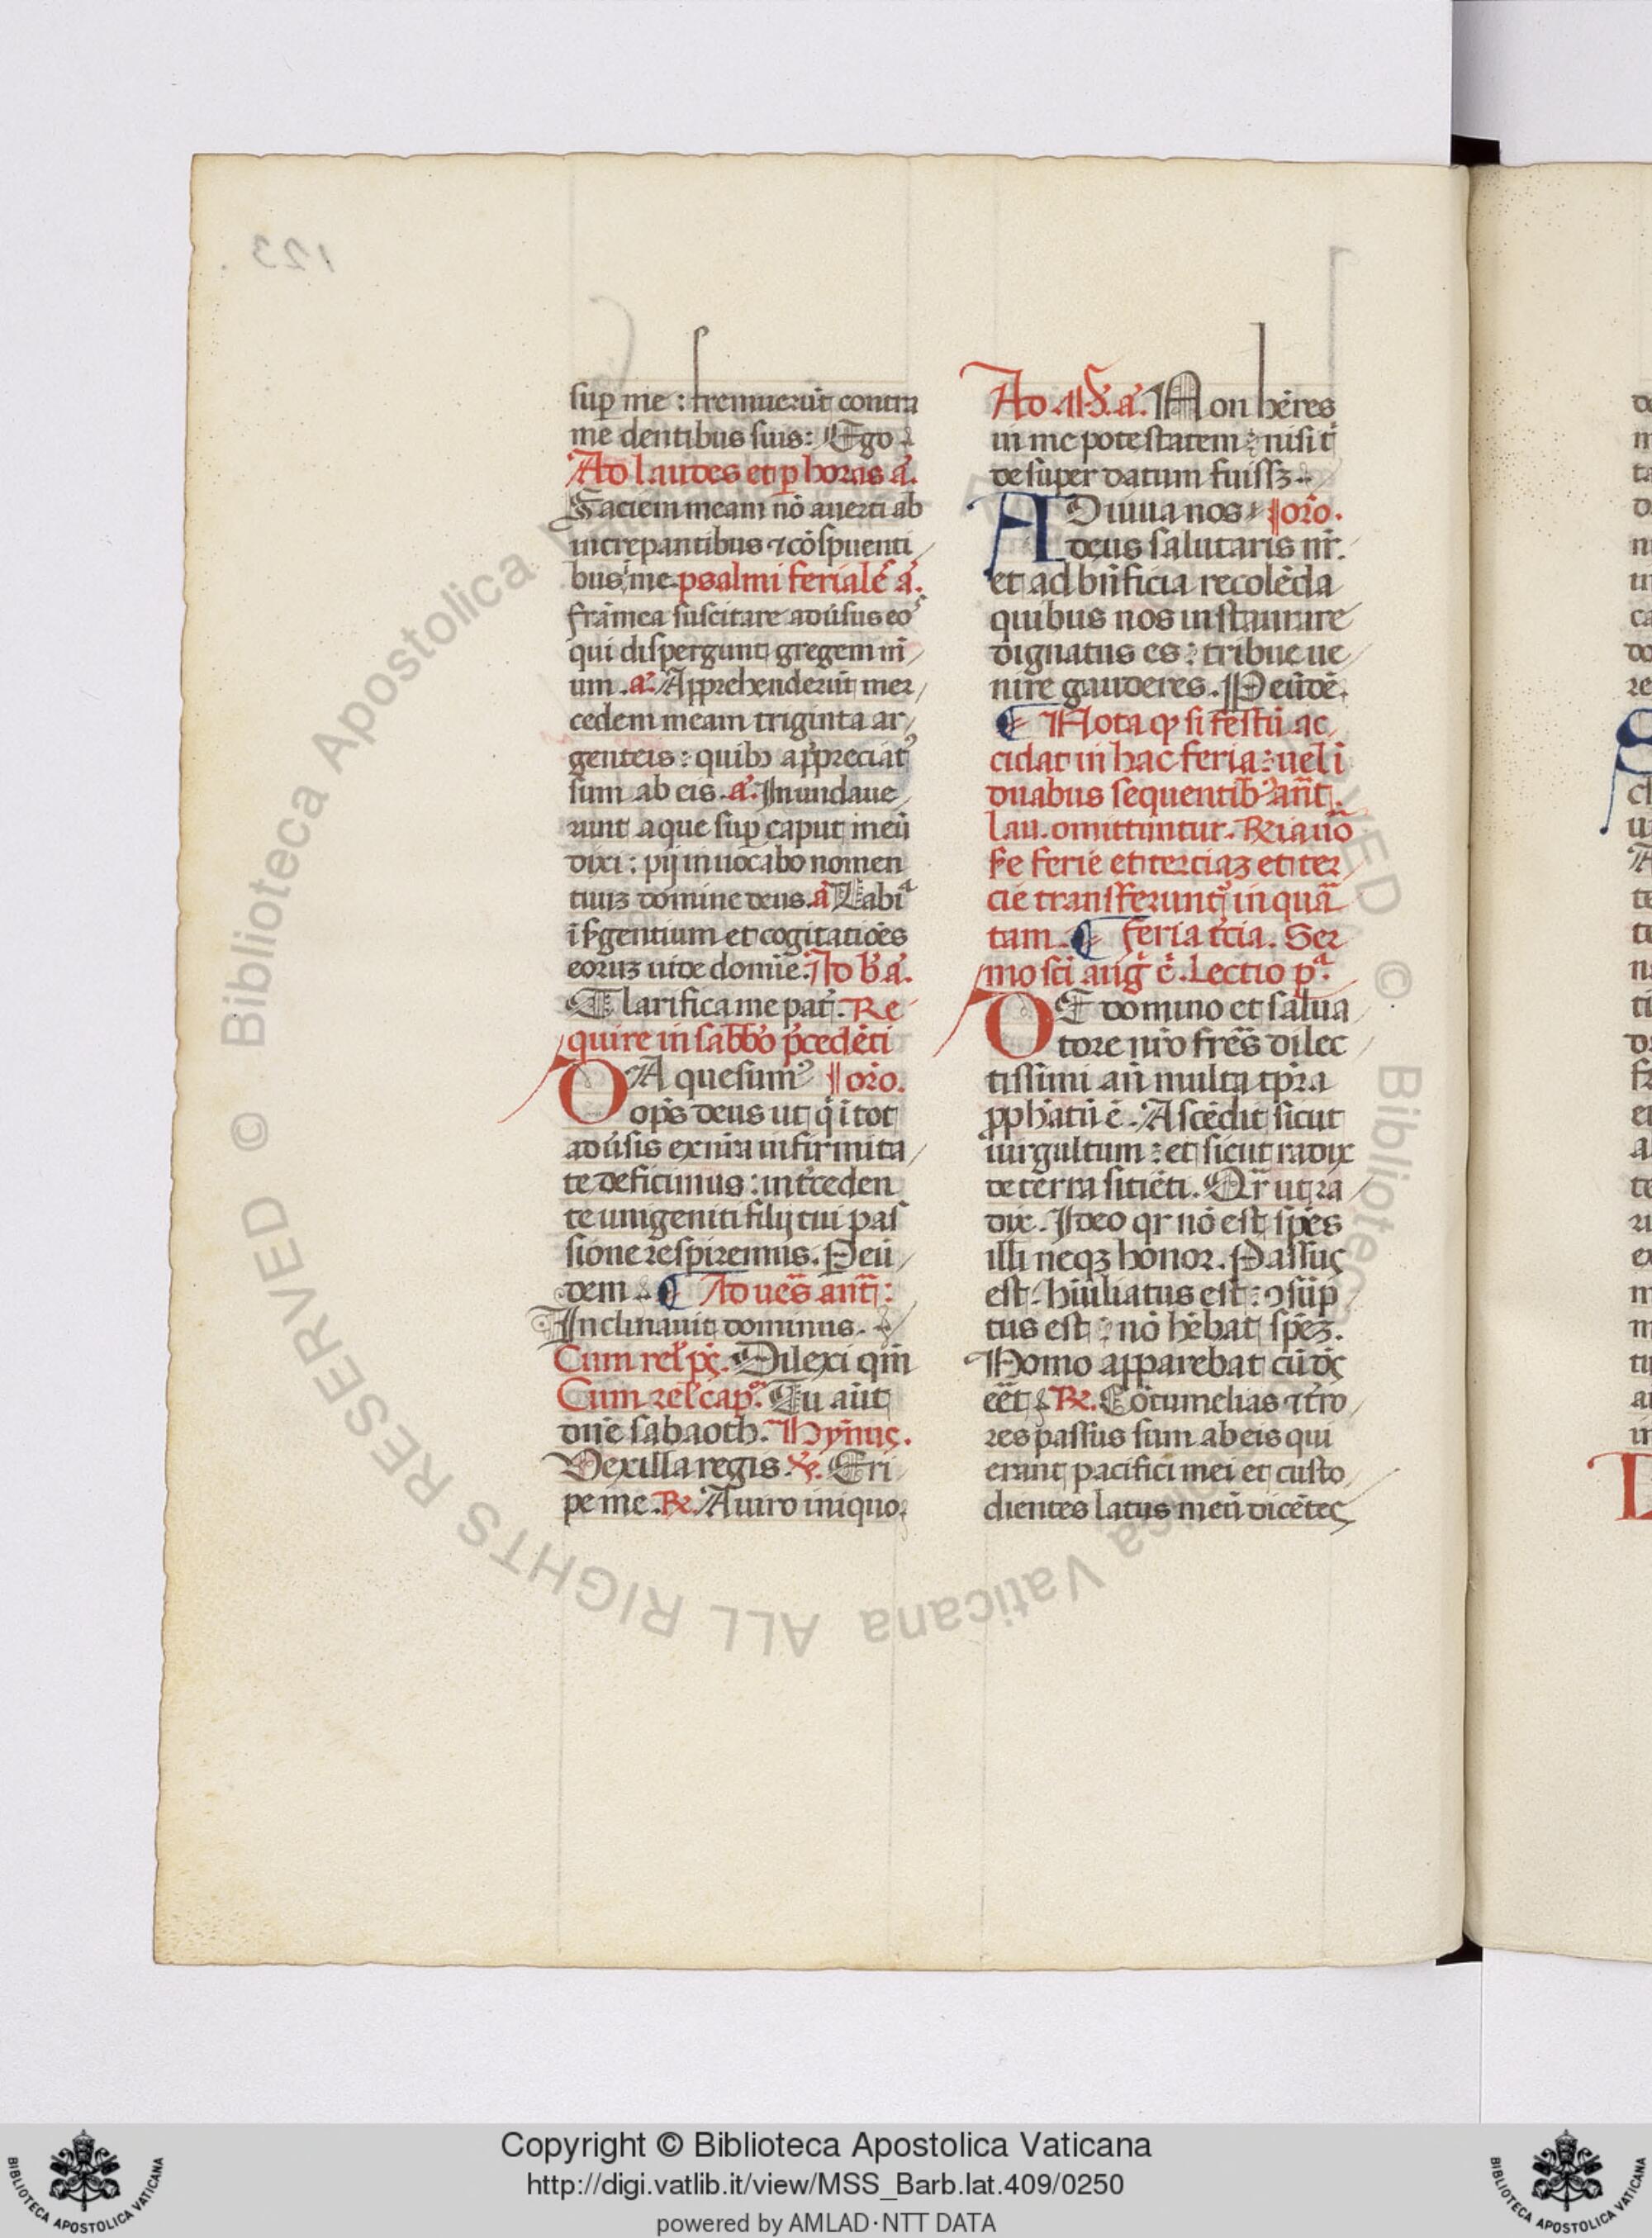 123
sup me : fremuerūt contra
me dentibus suis: Ego
Ad laudes et p horas a̅.
Faciem meam nō auerti ab
increpantibus ⁊ cōspuenti
bus me. psalmi feriale̅ a̅.
frāmea suscitare adūsus eo
qui dispergunt gregem m̅
um. a̅. Apprehenderūt mer
cedem meam triginta ar
genteis : quibꝫ appreciatꝰ
sum ab eis. a̅. Inundaue
runt aque sup caput meū
dixi : pij inuocabo nomen
tuuꝫ domine deus. a̅ Labia
ifgentium et cogitatiōes
eoruꝫ uide domīe. Ad b̅. a̅.
Clarifica me pat̅. Re
quire in sabbō p̄cedēti
DA quesumꝰ oro̅.
op̄s deus ut q̄ ī tot
adūsis ex nr̄a infirmita
te deficimus : int̄ceden
te unigeniti filij tui pas
sione respiremus. Per eū
dem. ¶ Ad ues̄ ant̄:
Inclinauit dominus.
Cum rel̄ pꝫ. Dilexi qm̄
Cum rel̄ cap̄. Tu aūt
dn̄e sabaoth. Hymꝰ.
Vexilla regis. ℣. Eri
pe me. ℟. A uiro iniquo.
Ad M̄. a̅. Non hēres
in me potestatem : nisi t̄
desuper datum fuissꝫ.
ADiuua nos oro̅.
deus salutaris nr̄.
et ad bn̄ficia recolēda
quibus nos instaurare
dignatus es : tribue ue
nire gaudētes. P eūdē.
¶ Nota ꝙ si festū ac
cidat in hac feria : uel ī
duabus sequentibꝰ ant̄.
lau. omittuntur. ℟ia uō
se ferie et terciaꝫ et ter
cie transferunt̄ in quar̄
tam. ¶ feria t̄cia. Ser
mo sc̄i aug̅ ē. Lectio p̅ᵃ.
DE domino et salua
tore nr̄o fres̄ dilec
tissimi an̄ multa tp̄ra
pphatū ē. Ascēdit sicut
uirgultum : et sicut radix
de terra sitiēti. Qr̄ ut ra
dix. Ideo qr nō est spēs
illi neqꝫ honor. Passuꝫ
est. hūiliatus est : ꝯsūp
tus est : nō hēbat spēꝫ.
Homo apparebat cū dꝫ
eēt. ℟. Cōtumelias ⁊ t̄ro
res passus sum ab eis qui
erant pacifici mei et custo
dientes latus meū dicētes
Copyright © Biblioteca Apostolica Vaticana
http://digi.vatlib.it/view/MSS_Barb.lat.409/0250
powered by AMLAD·NTT DATA
BIBLIOTECA APOSTOLICA VATICANA
BIBLIOTECA APOSTOLICA VATICANA